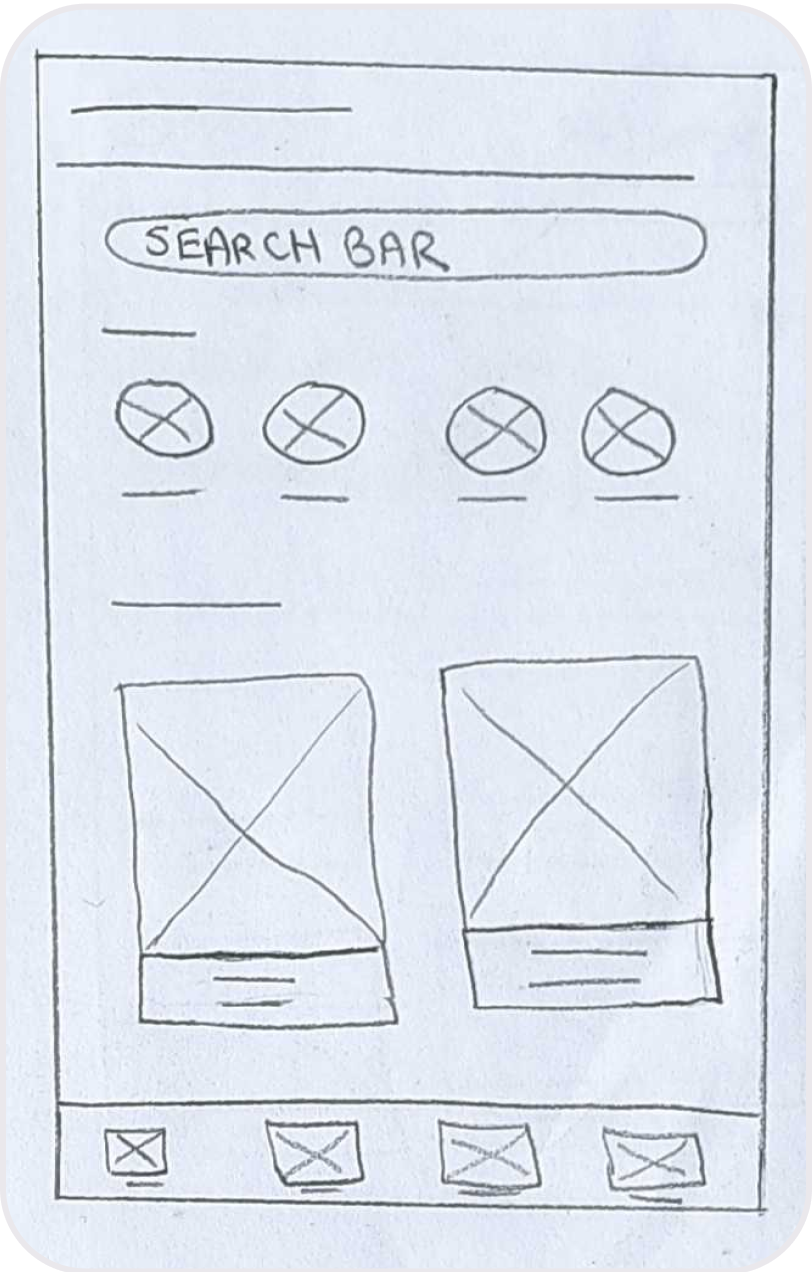 SEARCH BAR